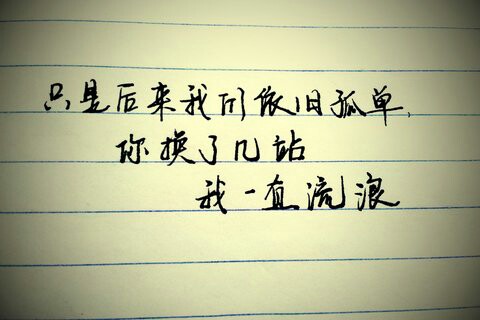 只是后来我们依旧孤单,
你换了几站
我一直流浪